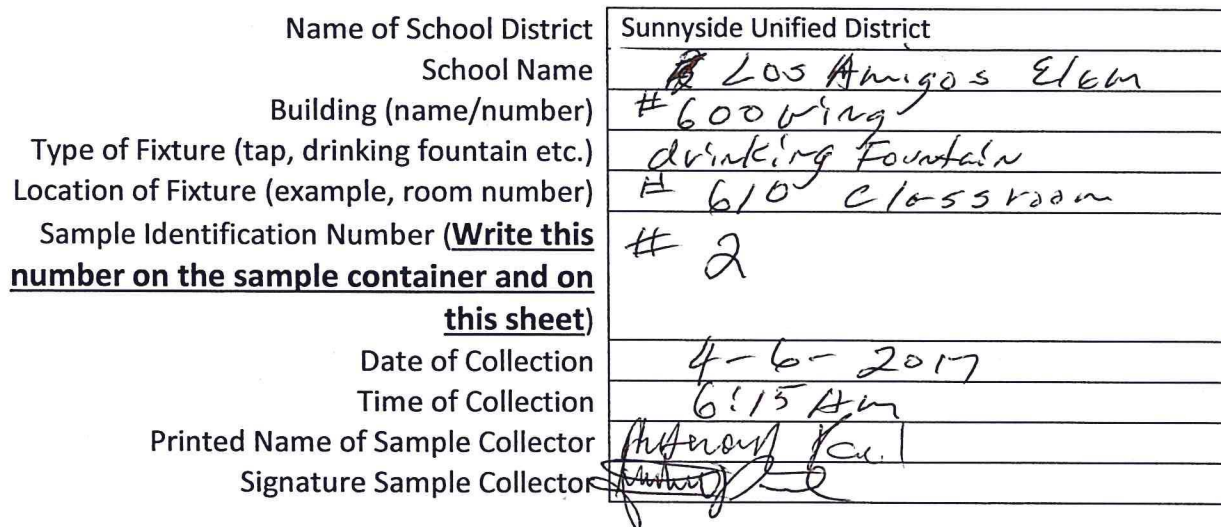 Name of School District Sunnyside Unified District
School Name Los Amigos Elem
Building (name/number) # 600 wing
Type of Fixture (tap, drinking fountain etc.) drinking Fountain
Location of Fixture (example, room number) # 610 Classroom
Sample Identification Number (Write this # 2
number on the sample container and on
this sheet)
Date of Collection 4-6-2017
Time of Collection 6:15 Am
Printed Name of Sample Collector
Signature Sample Collector